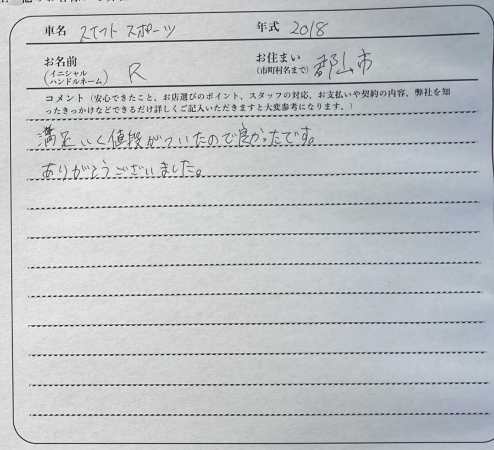 車名 スイフト スポーツ 年式 2018
お名前 (イニシャル ハンドルネーム) R お住まい (市町村名まで) 郡山市
コメント(安心できたこと、お店選びのポイント、スタッフの対応、お支払いや契約の内容、弊社を知
ったきっかけなどできるだけ詳しくご記入いただきますと大変参考になります。)
満足いく値段がついたので良かったです。
ありがとうございました。